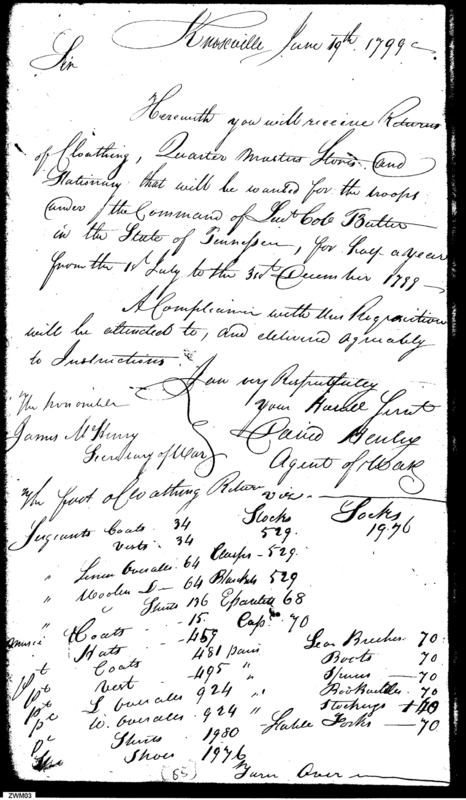 Knoxville June 19th 1799
Sir
Herewith you will receive Returns
of Cloathing, Quarter Masters Stores and
Stationary that will be wanted for the troops
under the Command of Lieut Colo Butler
in the State of Tennessee, for half a year
from the 1st July to the 31st December 1799
A Compliance with this Requisition
will be attended to, and delivered agreeably
to Instructions
I am very Respectfully
The honorable your Humble Servt
James McHenry David Henley
Secretary of War Agent of War
The foot of Cloathing Return viz
Sergeants Coats 34 Stocks 529 Socks 1976
Vests 34
" Linen Overalls 64 Clasps 529
" Woolen Do 64 Blankets 529
" Shirts 136 Epaulets 68
Music Coats 15 Caps 70
Hats 459 Lear Breeches 70
Pt Coats 481 pairs Boots 70
Pt Vest 495 " Spurs 70
Pt L Overalles 924 " 70
Pt W. Overalles 924 " Stockings 140
Pt Shirts 1980 Stable Forks 70
Shoes 1976
(65) Turn Over
ZWM03